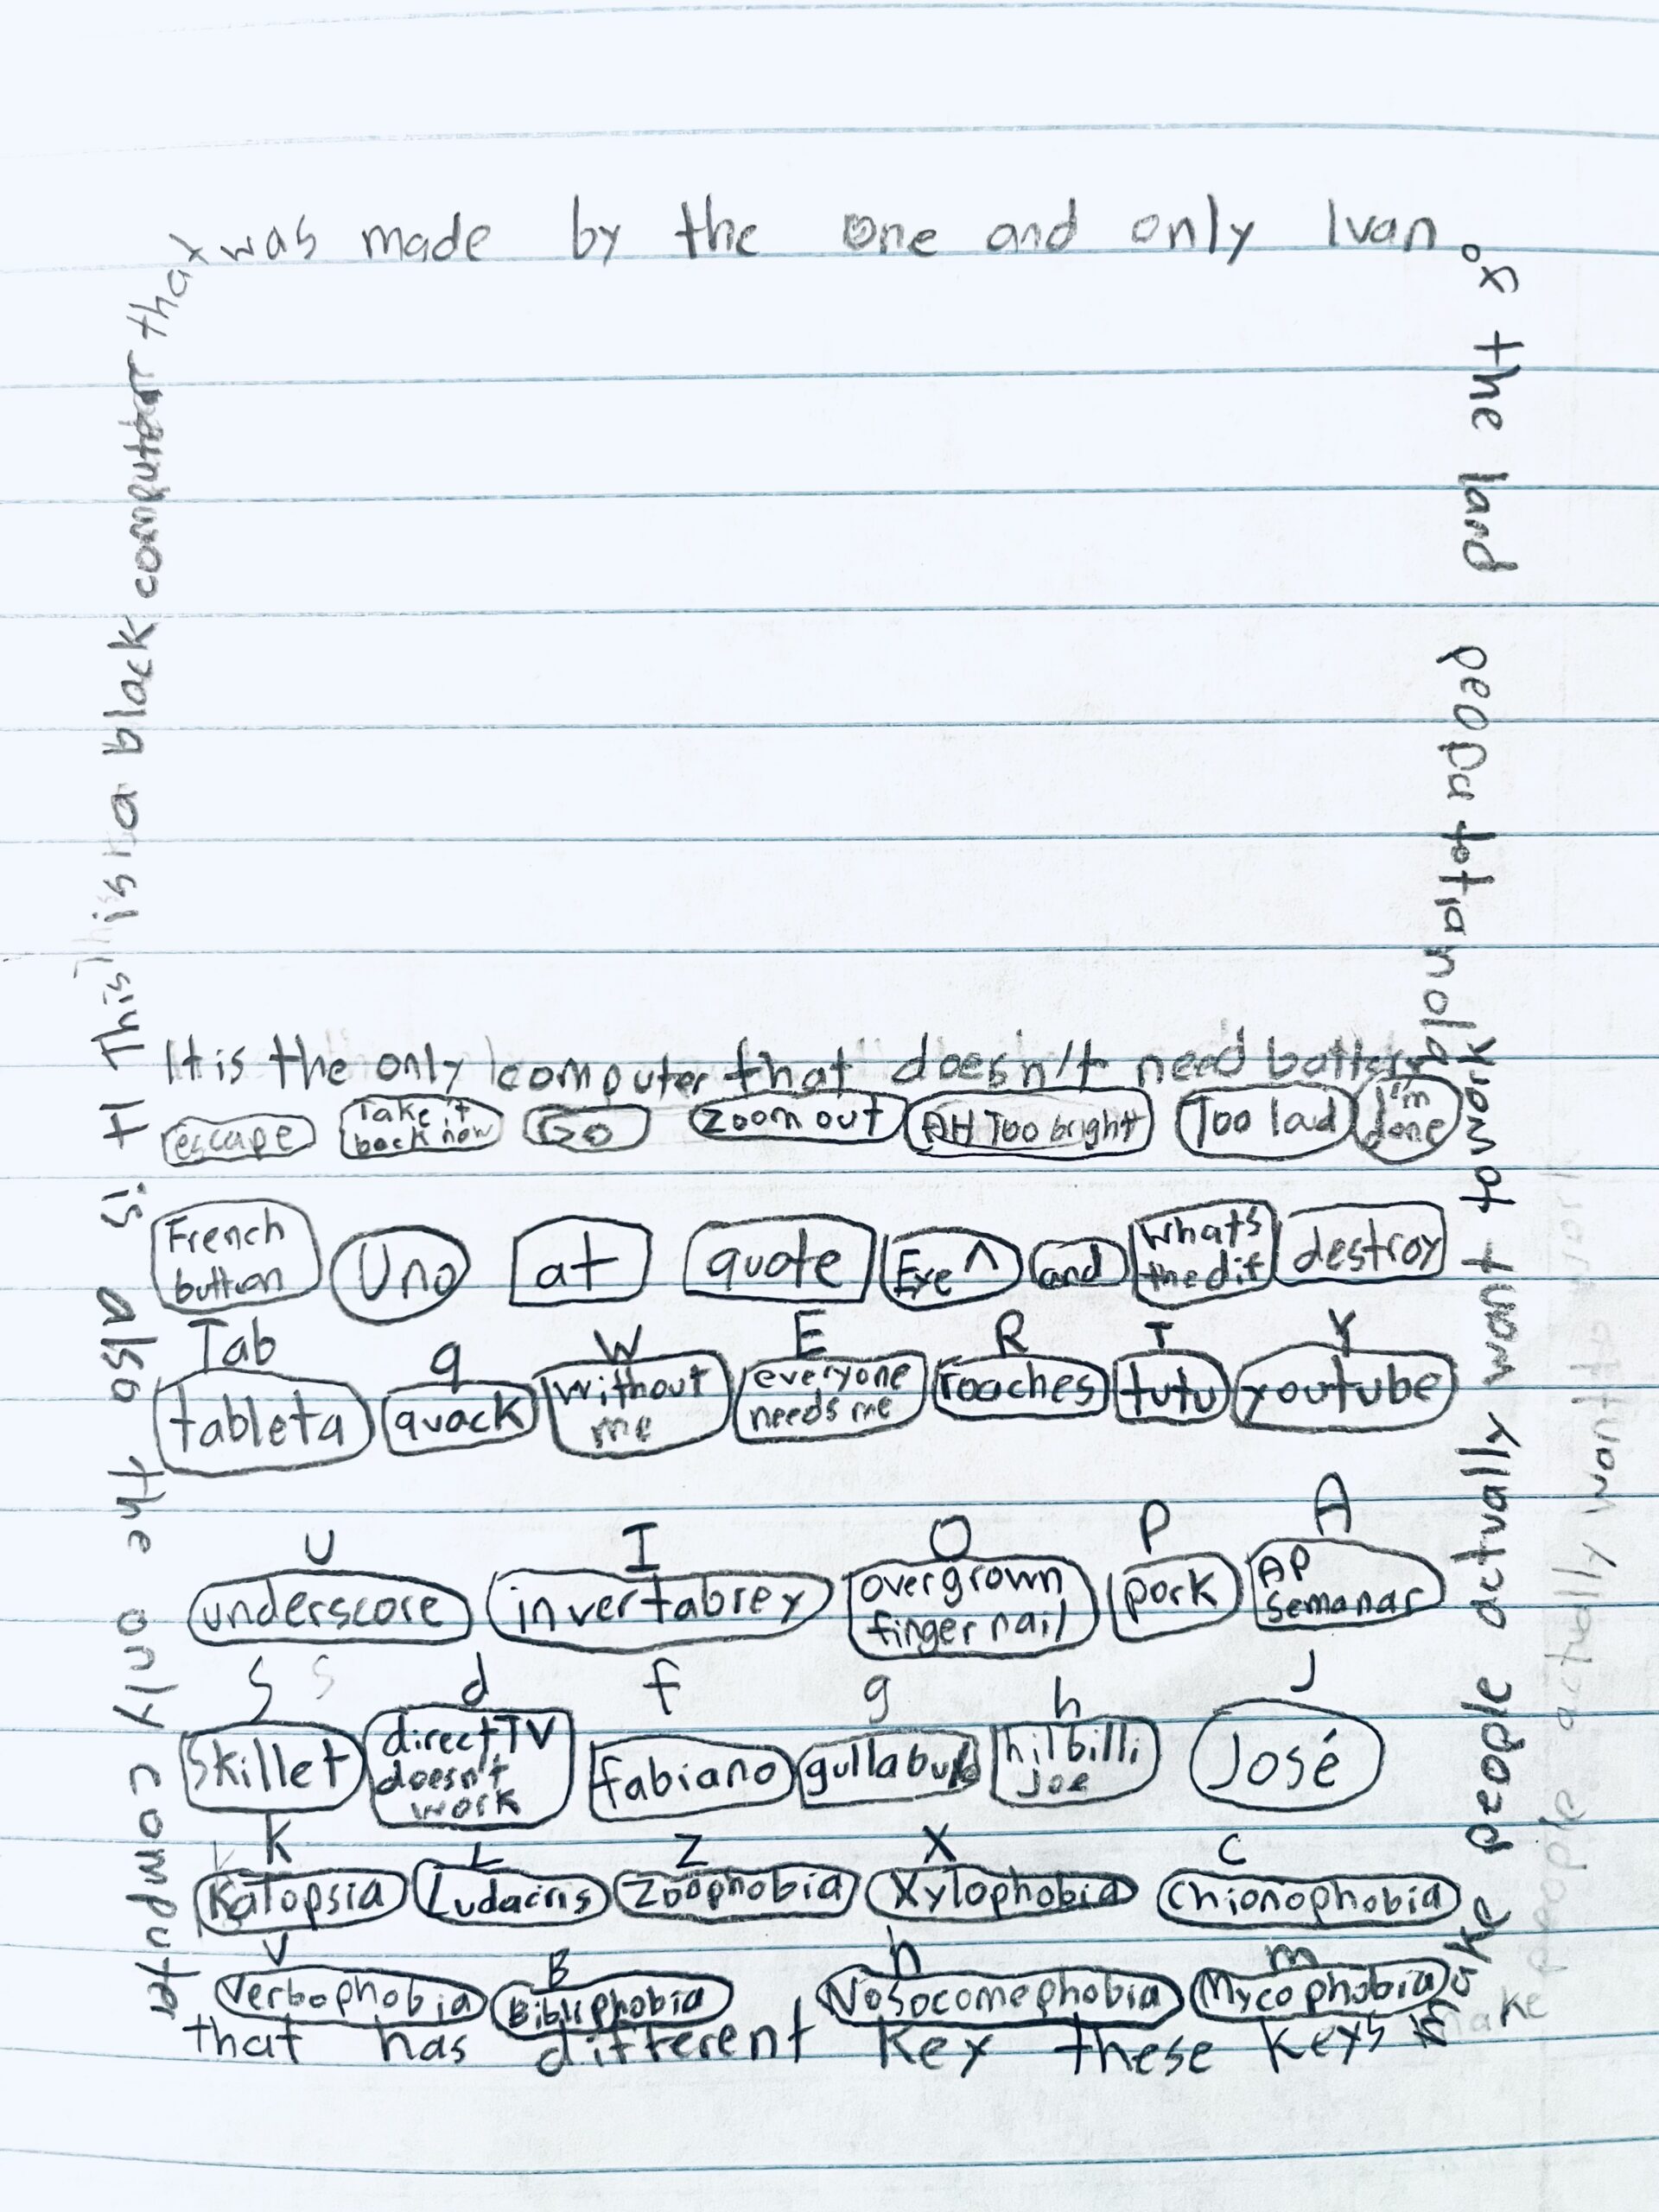 This is a black computer that
was made by the one and only Ivan
of the land
It is the only computer that doesn't need battery
escape Take it back now Go Zoom out AH Too bright Too lad I'm done
French button Uno at quote Exe ^ and What's the dif destroy
Tab q W E R T Y
tableta quack without me everyone needs me rooches tutu youtube
U I O P A
underscore invertabrey overgrown finger nail pork AP Semanar
S S d f g h J
Skillet direct TV doesn't work fabiano hilbilli Joe José
K L Z X C
Katopsia Ludacris Zoophobia Xylophobia Chionophobia
V B n m
Verbophobia Bibliphobia Nosocomephobia Mycophobia
It is also the only computer
that has different key these keys
make people actually want to work
make people actually want to work